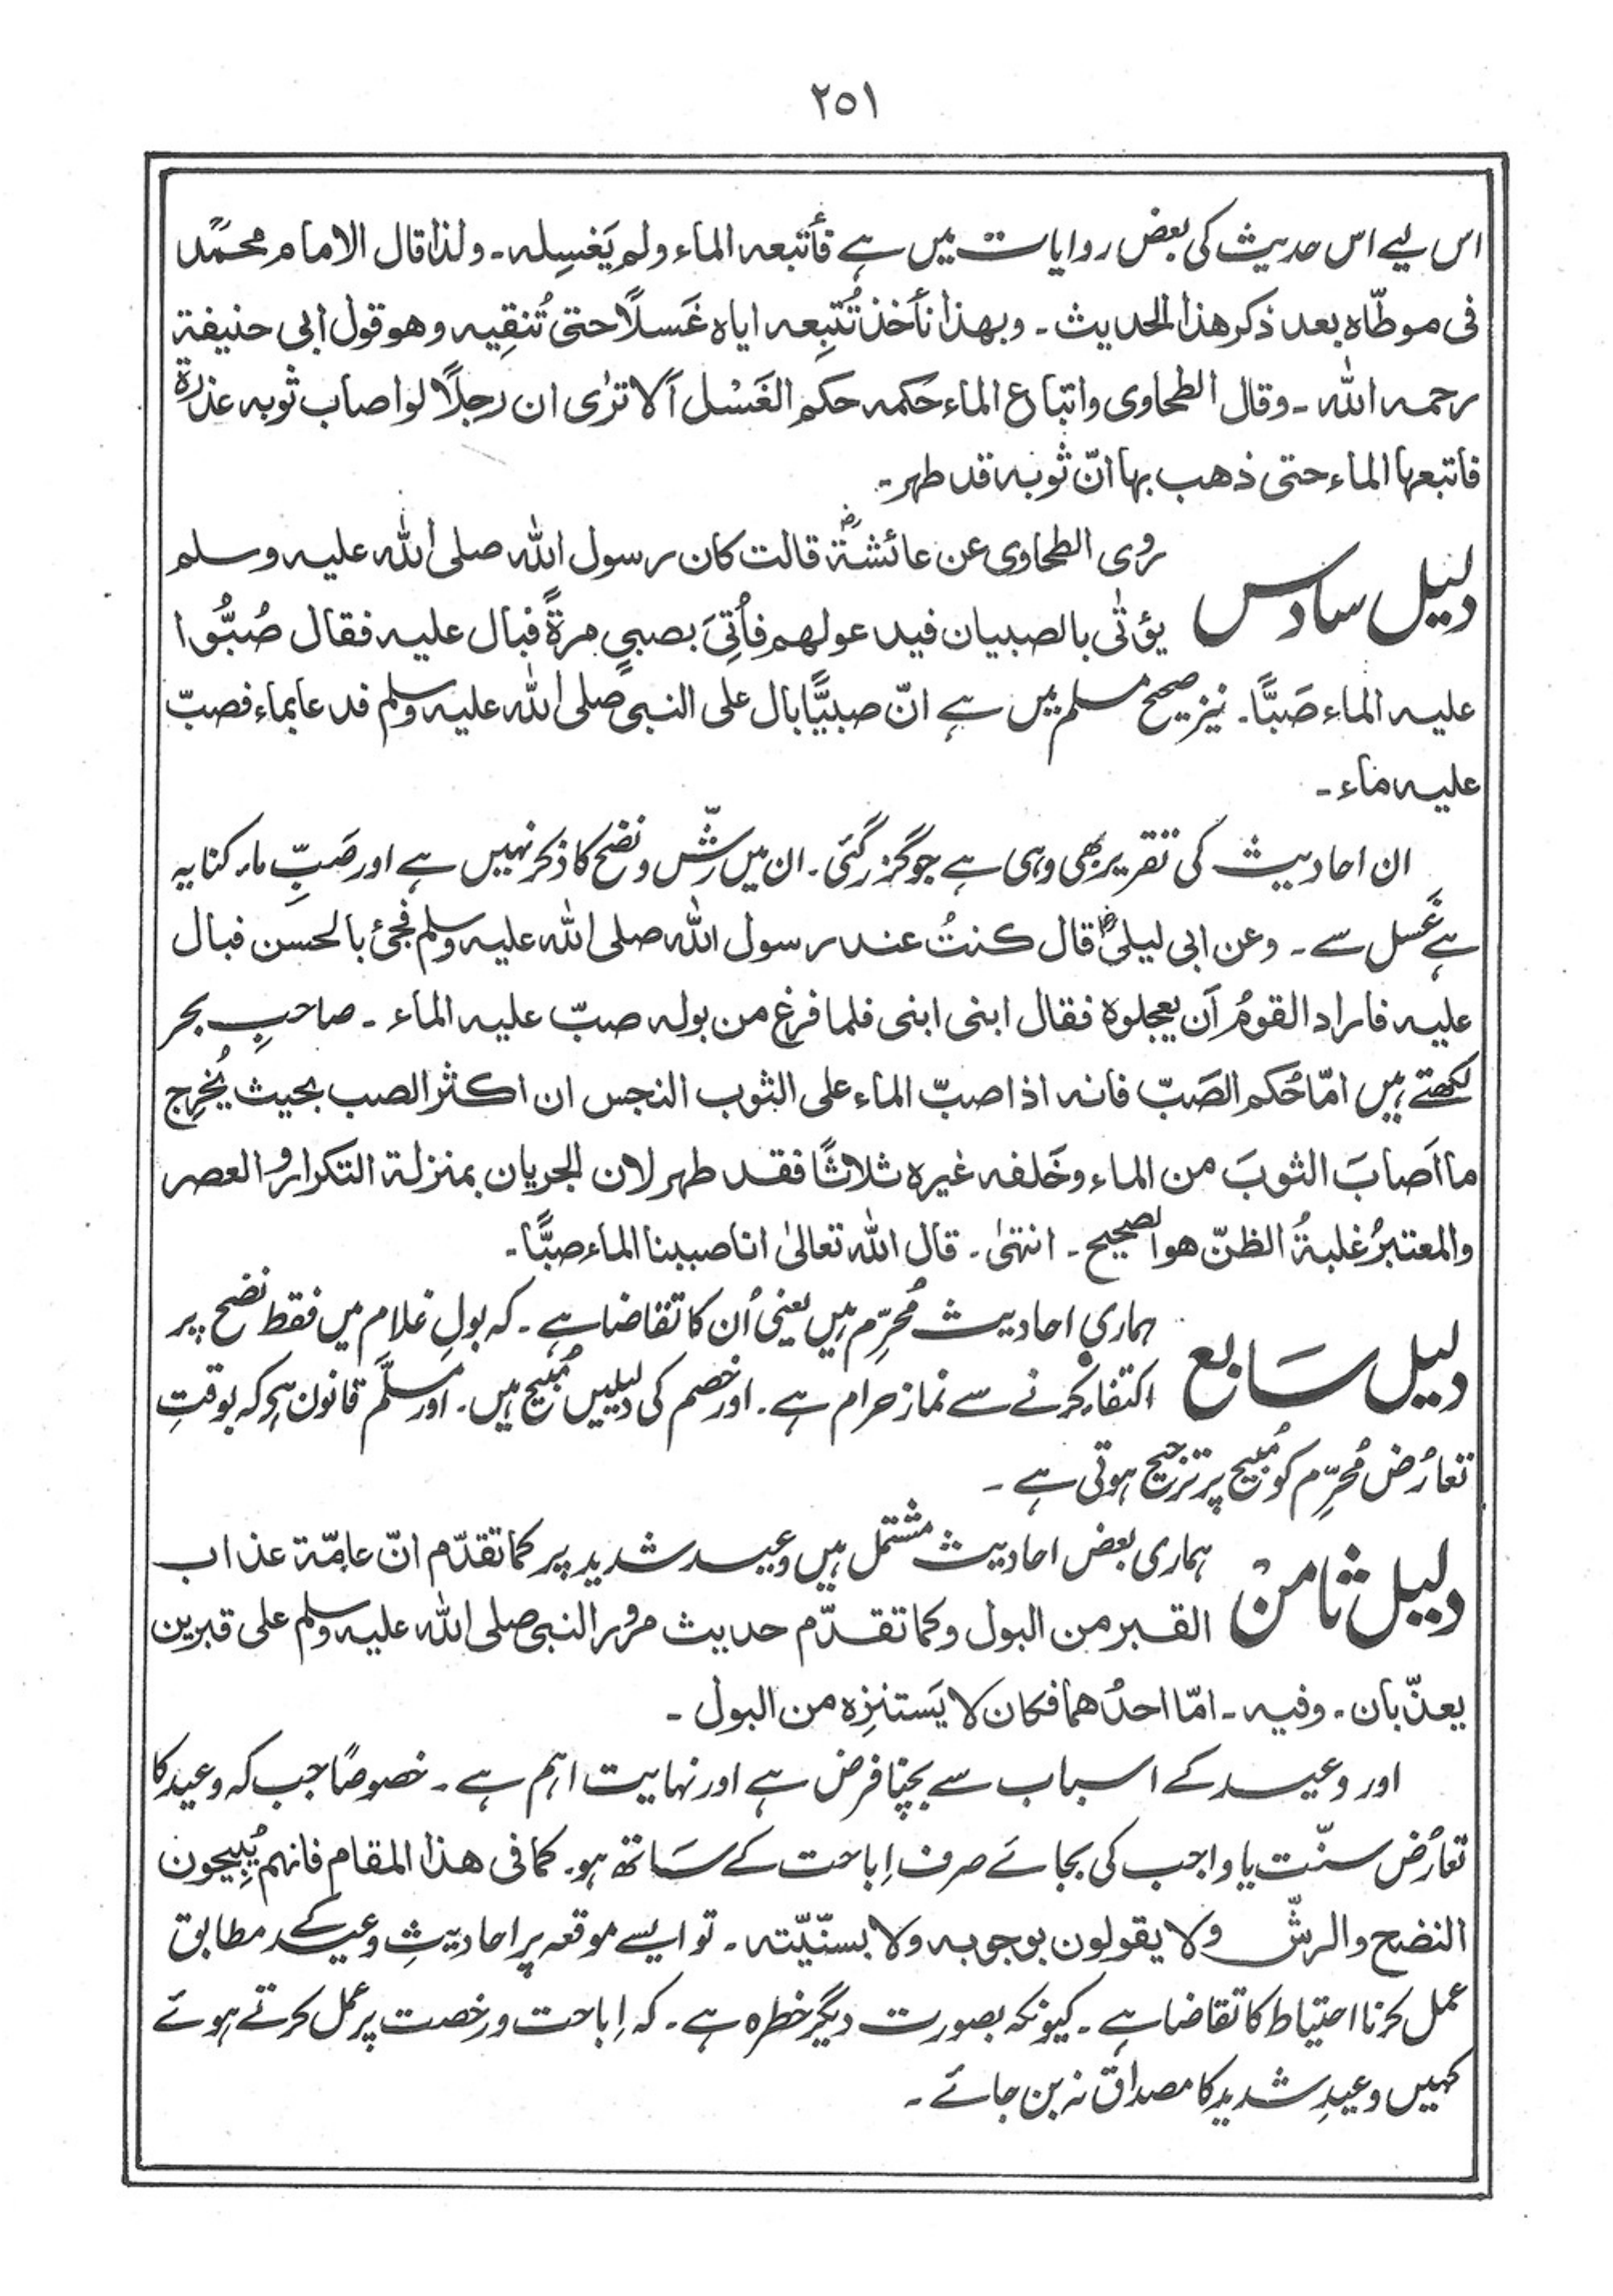 ۲۵۱
اس لیے اس حدیث کی بعض روایات میں ہے فأتبعہ الماء ولم یَغسِلہ۔ ولذا قال الامام محمّد
فی موطّاہ بعد ذکر ھذا الحدیث۔ وبھذا نأخذ تُتبِعہ ایاہ غَسلًا حتی تُنقِیہ وھو قول ابی حنیفۃ
رحمہ اللہ۔ وقال الطحاوی واتباع الماء حَکمہ حکم الغَسْل اَلا ترٰی ان رجلًا لو اصاب ثوبہ عذرۃ
فاتبعھا الماء حتی ذھب بھا انّ ثوبہ قد طھر۔
دلیل سادس روی الطحاوی عن عائشۃؓ قالت کان رسول اللہ صلی اللہ علیہ وسلم
یؤتٰی بالصبیان فیدعولھم فاُتِیَ بصبیٍ مرۃً فبال علیہ فقال صُبُّوا
علیہ الماء صَبًّا۔ نیز صحیح مسلم میں ہے انّ صبیًّا بال علی النبی صلی اللہ علیہ وسلم فدعا بماء فصبّ
علیہ ماء۔
ان احادیث کی تقریر بھی وہی ہے جو گزر گئی۔ ان میں رشّ و نضح کا ذکر نہیں ہے اور صَبِّ ماء کنایہ
ہے غَسل سے۔ وعن ابی لیلیؓ قال کنتُ عند رسول اللہ صلی اللہ علیہ وسلم فجئ بالحسن فبال
علیہ فاراد القومُ اَن یعجلوہ فقال ابنی ابنی فلما فرغ من بولہ صبّ علیہ الماء۔ صاحبِ بحر
لکھتے ہیں امّا حُکم الصَبّ فانہ اذا صبّ الماء علی الثوب النجس ان اکثر الصب بحیث یُخرِج
ما اَصابَ الثوبَ من الماء وخَلفہ غیرہ ثلاثًا فقد طھر لان الجریان بمنزلۃ التکرار والعصر
والمعتبرُ غلبۃُ الظنّ ھو الصحیح۔ انتھیٰ۔ قال اللہ تعالیٰ انا صببنا الماء صبًّا۔
دلیل سَابع ہماری احادیث مُحرِّم ہیں یعنی اُن کا تقاضا ہے۔ کہ بولِ غلام میں فقط نضح پر
اکتفاء کرنے سے نماز حرام ہے۔ اور خصم کی دلیلیں مُبیح ہیں۔ اور مسلَّم قانون ہے کہ بوقتِ
تعارُض مُحرِّم کو مُبیح پر ترجیح ہوتی ہے۔
دلیل ثامن ہماری بعض احادیث مشتمل ہیں وعید شدید پر کما تقدّم انّ عامّۃ عذاب
القبر من البول وکما تقدّم حدیث مرور النبی صلی اللہ علیہ وسلم علی قبرین
یعذّبان۔ وفیہ۔ امّا احدُھما فکان لا یَستنزِہ من البول۔
اور وعید کے اسباب سے بچنا فرض ہے اور نہایت اہم ہے۔ خصوصًا جب کہ وعید کا
تعارُض سنّت یا واجب کی بجائے صرف اِباحت کے سَاتھ ہو۔ کما فی ھذا المقام فانھم یُبیحون
النضح والرشّ ولا یقولون بوجوبہ ولا بسنّیّتہ۔ تو ایسے موقعہ پر احادیثِ وعید کے مطابق
عمل کرنا احتیاط کا تقاضا ہے۔ کیونکہ بصورت دیگر خطرہ ہے۔ کہ اِباحت و رخصت پر عمل کرتے ہوئے
کہیں وعیدِ شدید کا مصداق نہ بن جائے۔